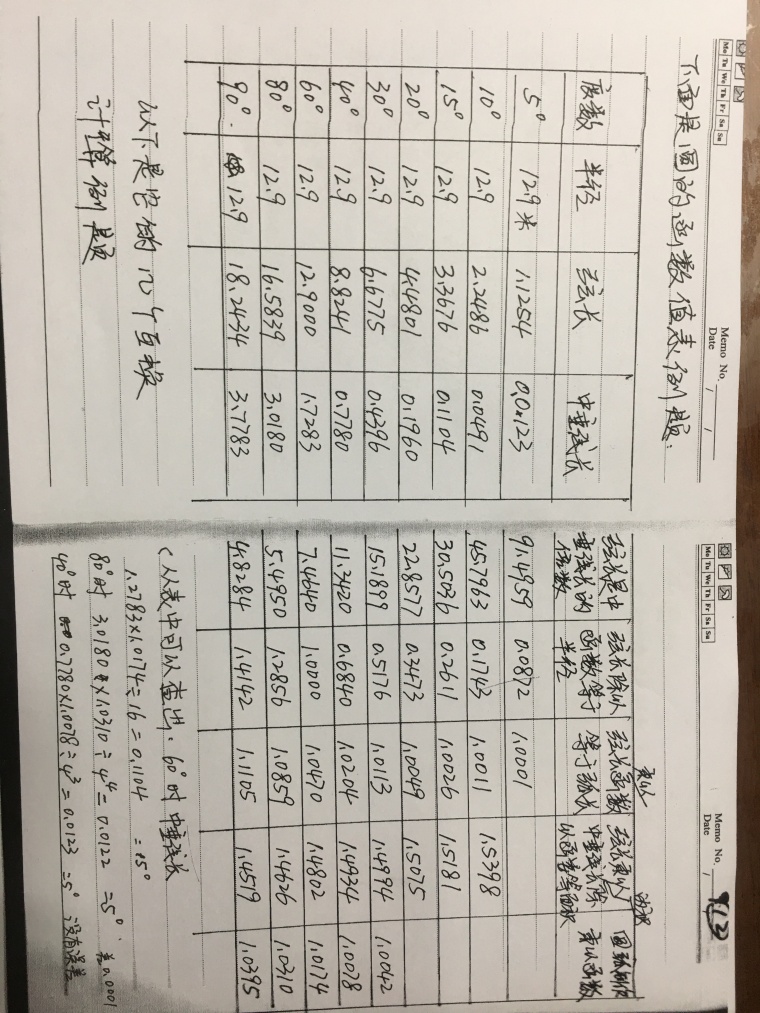 Memo No.
Date / /
Mo Tu We Th Fr Sa Su
下面是圆的函数值表例题:
度数 半径 弦长 中垂弦长
5° 12.9米 1.1254 0.0123
10° 12.9 2.2486 0.0491
15° 12.9 3.3676 0.1104
20° 12.9 4.4801 0.1960
30° 12.9 6.6775 0.4396
40° 12.9 8.8241 0.7780
60° 12.9 12.9000 1.7283
80° 12.9 16.5839 3.0180
90° 12.9 18.2434 3.7783
以下是它的几个互换
计算例题
Memo No.
Date /
Mo Tu We Th Fr Sa Su
弦长是中垂弦长的倍数 弦长除以函数等于半径 弦长乘以函数等于弧长 弦长乘以中垂弦长除以函数等面积
91.4959 0.0872 1.0001
45.7963 0.1743 1.0011 1.5398
30.5036 0.2611 1.0026 1.5181
22.8577 0.3473 1.0049 1.5075
15.1899 0.5176 1.0113 1.4994 1.0042
11.3420 0.6840 1.0204 1.4934 1.0078
7.4640 1.0000 1.0470 1.4802 1.0174
5.4950 1.2856 1.0859 1.4626 1.0310
4.8284 1.4142 1.1105 1.4519 1.0395
(从表中可以查出. 60°时 中垂弦长
1.7283×1.0174÷16=0.1104 =15°
80°时 3.0180×1.0310÷4⁴=0.0122 =5° 差0.0001
40°时 0.7780×1.0078÷4³=0.0123 =5° 没有误差